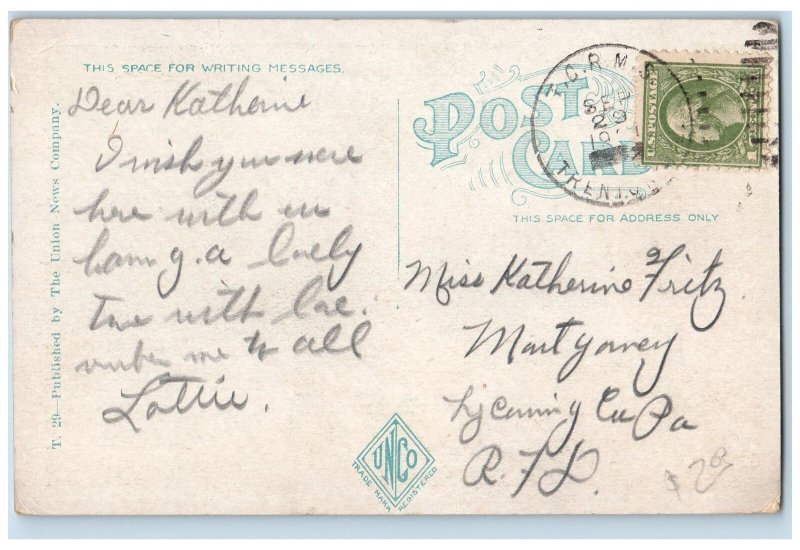 THIS SPACE FOR WRITING MESSAGES.
Dear Katherine
I wish you were
here with us
haing a lovely
time with love.
me to all
Lottie.
T. 29—Published by The Union News Company.
POST CARD
THIS SPACE FOR ADDRESS ONLY
TRENTON
U.S. POSTAGE
Miss Katherine Fritz
Montgomery
Lycoming Co Pa
R.F.D.
UNCO
TRADE MARK REGISTERED
$ 2